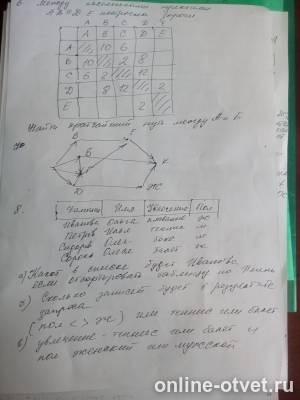 6 Между населёнными пунктами
A B C D E построены дороги
A B C D E
A 10 6
B 10 2 8
C 6 2 12
D 8 12 2
E 2
Найти кратчайший путь между A и E
B E
Б
D Ж
8.
Фамилия Имя Увлечение Пол
Иванова Ольга ж
Петров теннис м
Сидоров Олег бокс м
Сорока Ольга балет ж
а) в списке будет Иванова,
если отсортировать таблицу по Имени
б) Сколько записей будет в результате
запроса
(пол <> ж) или теннис или балет
в) увлечение = теннис или балет и
пол женский или мужской
online-otvet.ru